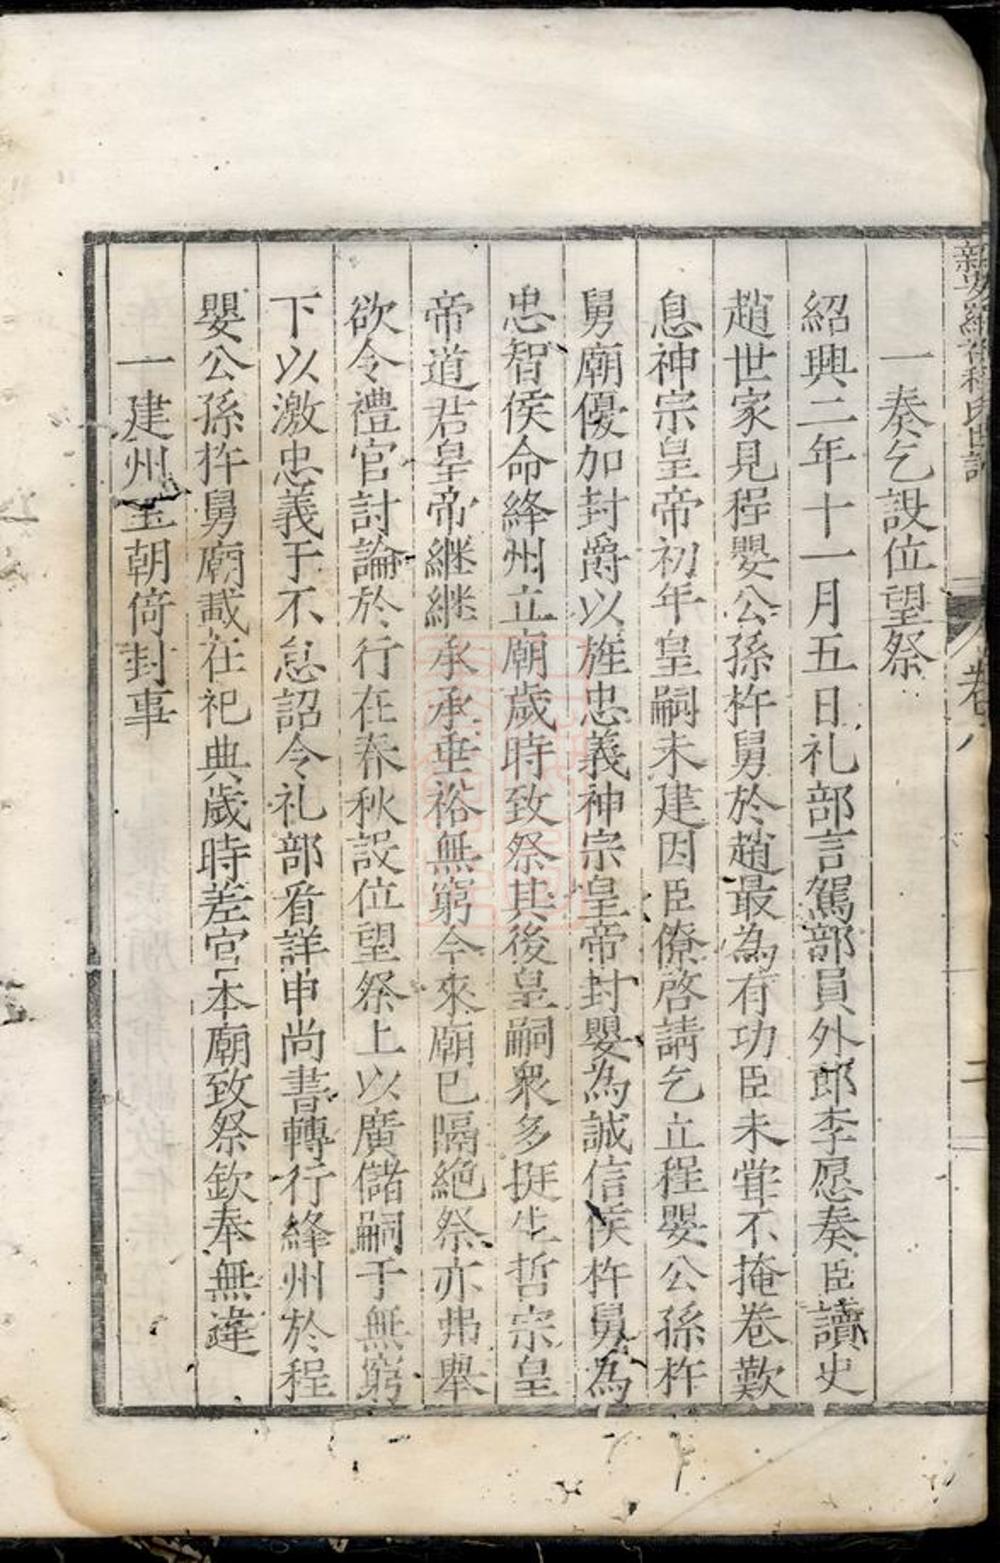 一奏乞設位望祭
紹興二年十一月五日礼部言駕部員外郎李愿奏臣讀史
趙世家見程嬰公孫杵舅於趙最為有功臣未甞不掩卷歎
息神宗皇帝初年皇嗣未建因臣僚啓請乞立程嬰公孫杵
舅廟優加封爵以旌忠義神宗皇帝封嬰為誠信侯杵舅為
忠智侯命絳州立廟歲時致祭其後皇嗣衆多挺生哲宗皇
帝道君皇帝継継承承垂裕無窮今來廟已隔絶祭亦弗舉
欲令禮官討論於行在春秋設位望祭上以廣儲嗣于無窮
下以激忠義于不怠詔令礼部看詳申尚書轉行絳州於程
嬰公孫杵舅廟載在祀典歲時差官本廟致祭欽奉無違
一建州 朝倚封事
卷八
二